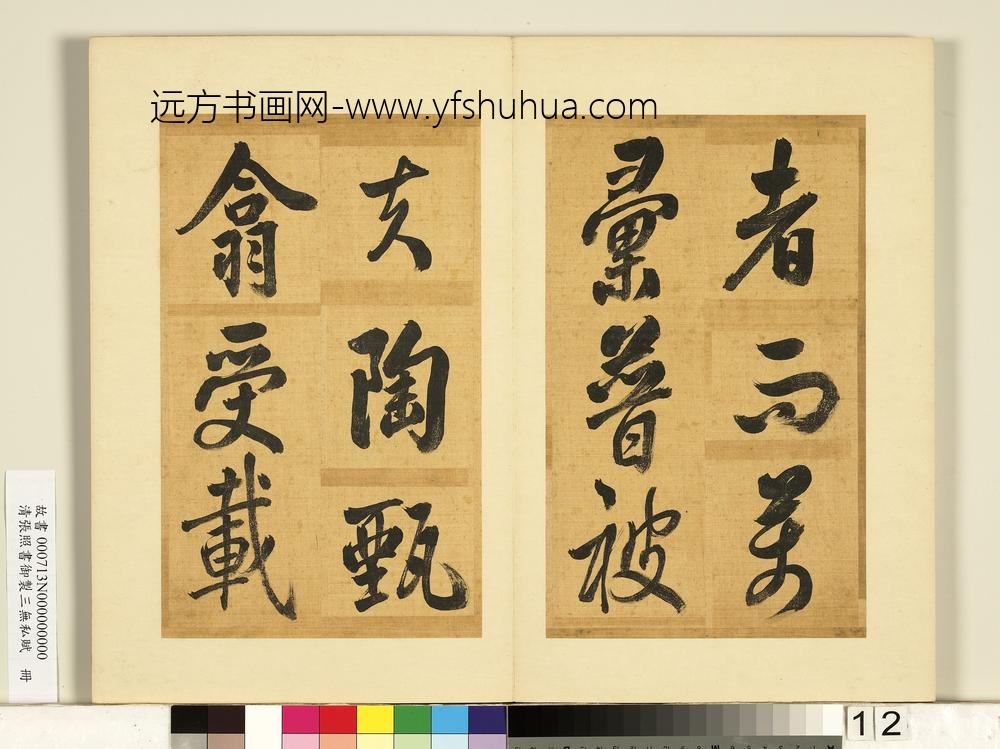 远方书画网-www.yfshuhua.com
者而萬
彙普被
其陶甄
翕受載
故書 000713N000000000
清張照書御製三無私賦 冊
12